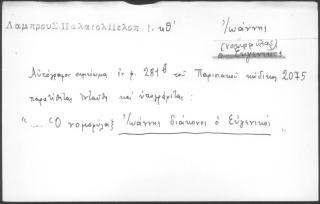 Λαμπρου Σ. Παλαιολ Πελοπ 1. κθ'
Ἰωάννης
(νομοφύλαξ)
ὁ Εὐγενικός
Αὐτόγραφον σημείωμα ἐν φ. 281β τοῦ Παρισιακοῦ κώδικος 2075
παρατίθεται ἐνταῦθα καὶ ὑπογράφεται:
".... Ὁ νομοφύλαξ Ἰωάννης διάκονος ὁ Εὐγενικός "